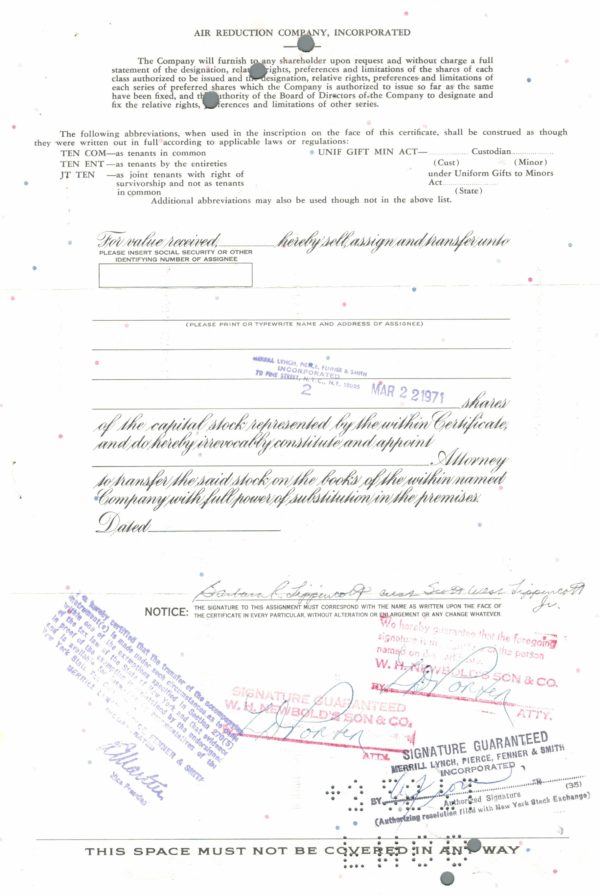 AIR REDUCTION COMPANY, INCORPORATED
The Company will furnish to any shareholder upon request and without charge a full
statement of the designation, relative rights, preferences and limitations of the shares of each
class authorized to be issued and the designation, relative rights, preferences and limitations of
each series of preferred shares which the Company is authorized to issue so far as the same
have been fixed, and the authority of the Board of Directors of the Company to designate and
fix the relative rights, preferences and limitations of other series.
The following abbreviations, when used in the inscription on the face of this certificate, shall be construed as though
they were written out in full according to applicable laws or regulations:
TEN COM—as tenants in common UNIF GIFT MIN ACT— Custodian
TEN ENT —as tenants by the entireties (Cust) (Minor)
JT TEN —as joint tenants with right of under Uniform Gifts to Minors
survivorship and not as tenants Act
in common (State)
Additional abbreviations may also be used though not in the above list.
For value received, hereby sell, assign and transfer unto
PLEASE INSERT SOCIAL SECURITY OR OTHER
IDENTIFYING NUMBER OF ASSIGNEE
(PLEASE PRINT OR TYPEWRITE NAME AND ADDRESS OF ASSIGNEE)
MERRILL LYNCH, PIERCE, FENNER & SMITH
INCORPORATED
70 PINE STREET, N.Y.C., N.Y. 10005
2 MAR 22 1971
shares
of the capital stock represented by the within Certificate,
and do hereby irrevocably constitute and appoint
Attorney
to transfer the said stock on the books of the within named
Company with full power of substitution in the premises.
Dated
Barbara C. Lippincott Scott West Lippincott
Jr.
NOTICE: THE SIGNATURE TO THIS ASSIGNMENT MUST CORRESPOND WITH THE NAME AS WRITTEN UPON THE FACE OF
THE CERTIFICATE IN EVERY PARTICULAR, WITHOUT ALTERATION OR ENLARGEMENT OR ANY CHANGE WHATEVER.
We hereby guarantee that the foregoing
signature is person
named on
W. H. NEWBOLD'S SON & CO.
BY
ATTY.
SIGNATURE GUARANTEED
W. H. NEWBOLD'S SON & CO.
ATTY.
It is hereby certified that the transfer of the accompanying
MERRILL LYNCH, PIERCE, FENNER & SMITH
Vice President
SIGNATURE GUARANTEED
MERRILL LYNCH, PIERCE, FENNER & SMITH
INCORPORATED
BY (35)
Authorized Signature
(Authorizing resolution filed with New York Stock Exchange)
THIS SPACE MUST NOT BE COVERED IN ANY WAY